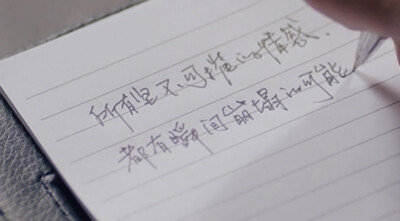 所有坚不可摧的情感.
都有瞬间崩塌的可能